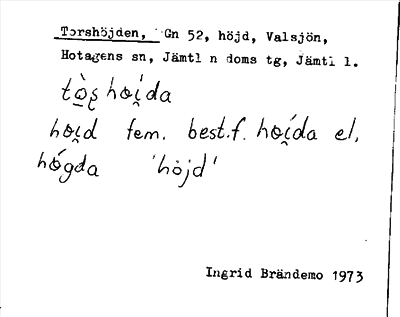 Torshöjden, Gn 52, höjd, Valsjön,
Hotagens sn, Jämtl n doms tg, Jämtl l.
tò̠ʂ hɵí̯da
hɵi̯d fem. best.f. hɵí̯da el.
hǿgda 'höjd'
Ingrid Brändemo 1973